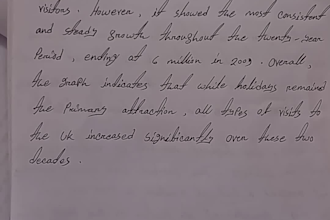 visitors. However, it showed the most consistent
and steady growth throughout the twenty-year
Period, ending at 6 million in 2003. Overall,
the graph indicates that while holidays remained
the Primary attraction, all types of visits to
the UK increased significantly over these two
decades.